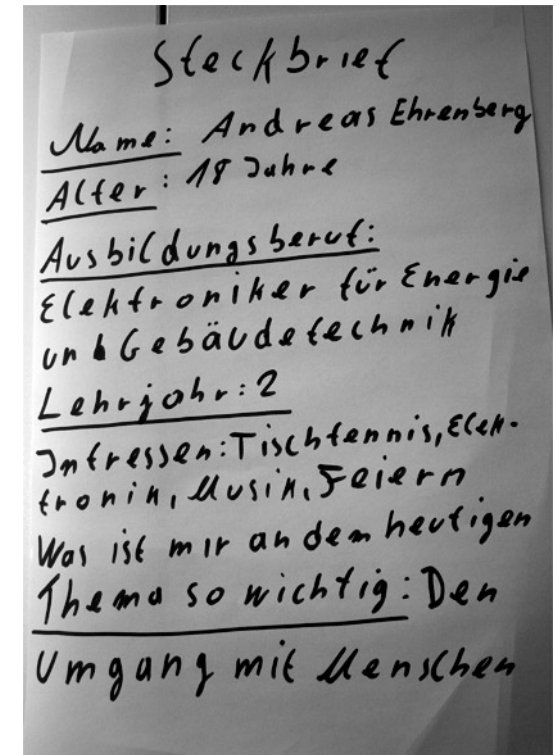 Steckbrief
Name: Andreas Ehrenberg
Alter: 18 Jahre
Ausbildungsberuf:
Elektroniker für Energie
und Gebäudetechnik
Lehrjahr: 2
Intressen: Tischtennis, Elek-
tronik, Musik, Feiern
Was ist mir an dem heutigen
Thema so wichtig: Den
Umgang mit Menschen